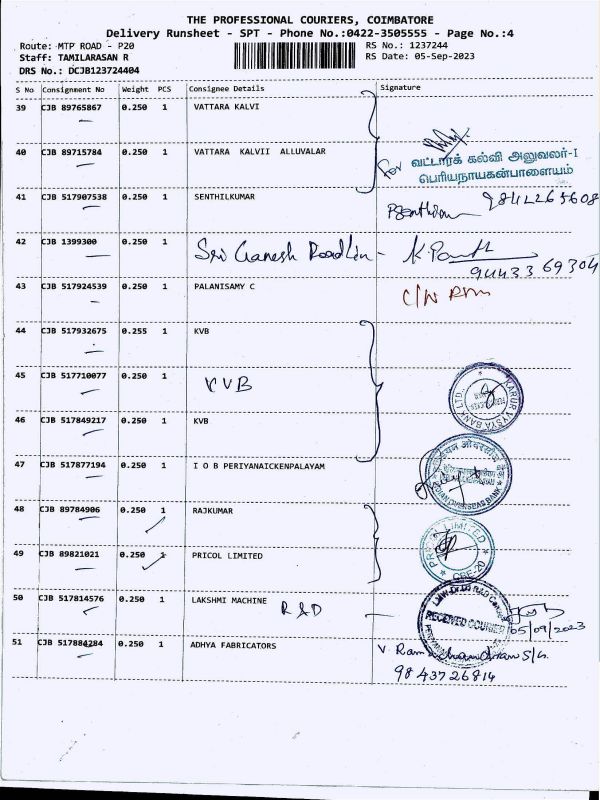 THE PROFESSIONAL COURIERS, COIMBATORE
Delivery Runsheet - SPT - Phone No.:0422-3505555 - Page No.:4
Route: MTP ROAD - P20 RS No.: 1237244
Staff: TAMILARASAN R RS Date: 05-Sep-2023
DRS No.: DCJB123724404
S No Consignment No Weight PCS Consignee Details Signature
39 CJB 89765867 0.250 1 VATTARA KALVI
40 CJB 89715784 0.250 1 VATTARA KALVII ALLUVALAR
For வட்டாரக் கல்வி அலுவலர்-I
பெரியநாயகன்பாளையம்
41 CJB 517907538 0.250 1 SENTHILKUMAR 9842265608
42 CJB 1399300 0.250 1 Sri Ganesh Roadlin -
94433 69304
43 CJB 517924539 0.250 1 PALANISAMY C C/N
44 CJB 517932675 0.255 1 KVB
45 CJB 517710077 0.250 1 KVB
KARUR VYSYA BANK LTD.
46 CJB 517849217 0.250 1 KVB
47 CJB 517877194 0.250 1 I O B PERIYANAICKENPALAYAM
INDIAN OVERSEAS BANK
48 CJB 89784906 0.250 1 RAJKUMAR
49 CJB 89821021 0.250 1 PRICOL LIMITED
PRICOL LIMITED
CBE-20
50 CJB 517814576 0.250 1 LAKSHMI MACHINE R&D
RECEIVED COURIER
05/09/2023
51 CJB 517884284 0.250 1 ADHYA FABRICATORS V. Ramachandran S/G
9843726814